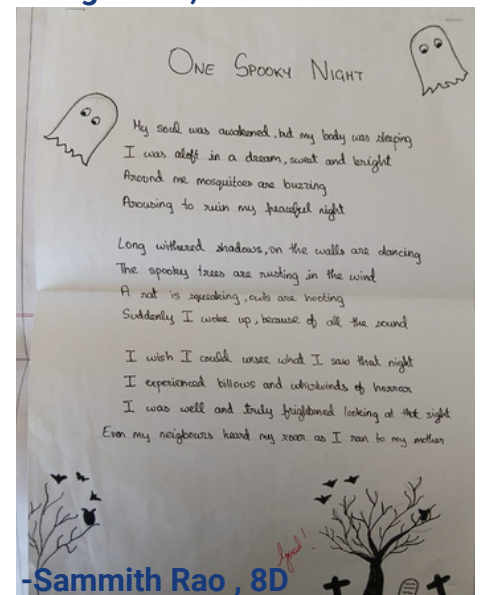 One Spooky Night
My soul was awakened, but my body was sleeping
I was aloft in a dream, sweet and bright
Around me mosquitoes are buzzing
Arousing to ruin my peaceful night
Long withered shadows, on the walls are dancing
The spooky trees are rusting in the wind
A rat is squeaking, owls are hooting
Suddenly I woke up, because of all the sound
I wish I could unsee what I saw that night
I experienced billows and whirlwinds of horror
I was well and truly frightened looking at that sight
Even my neighbours heard my roar as I ran to my mother
Good!
-Sammith Rao , 8D